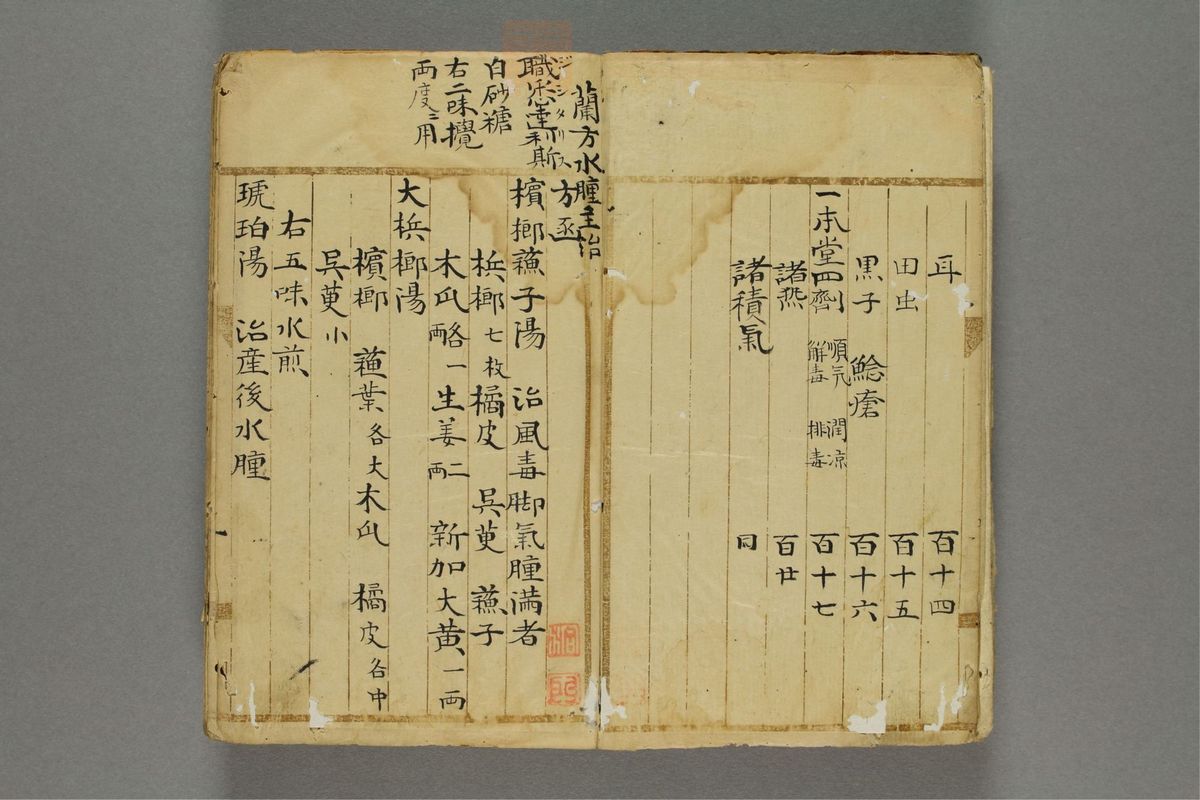 耳 百十四
田虫 百十五
黒子 鯰瘡 百十六
一本堂四劑 順気 潤凉 解毒 排毒 百十七
諸熬 百廿
諸積氣 同
蘭方水腫主治
ヂシタリス
職悉達利斯
白砂糖
右二味攪
両度ニ用
方函
檳榔蘓子湯 治風毒脚氣腫満者
梹榔七枚 橘皮 呉茰 蘓子
木瓜各一両 生姜二両 新加大黄一両
大梹榔湯
檳榔 蘓葉各大 木瓜 橘皮各中
呉茰小
右五味水煎
琥珀湯 治産後水腫